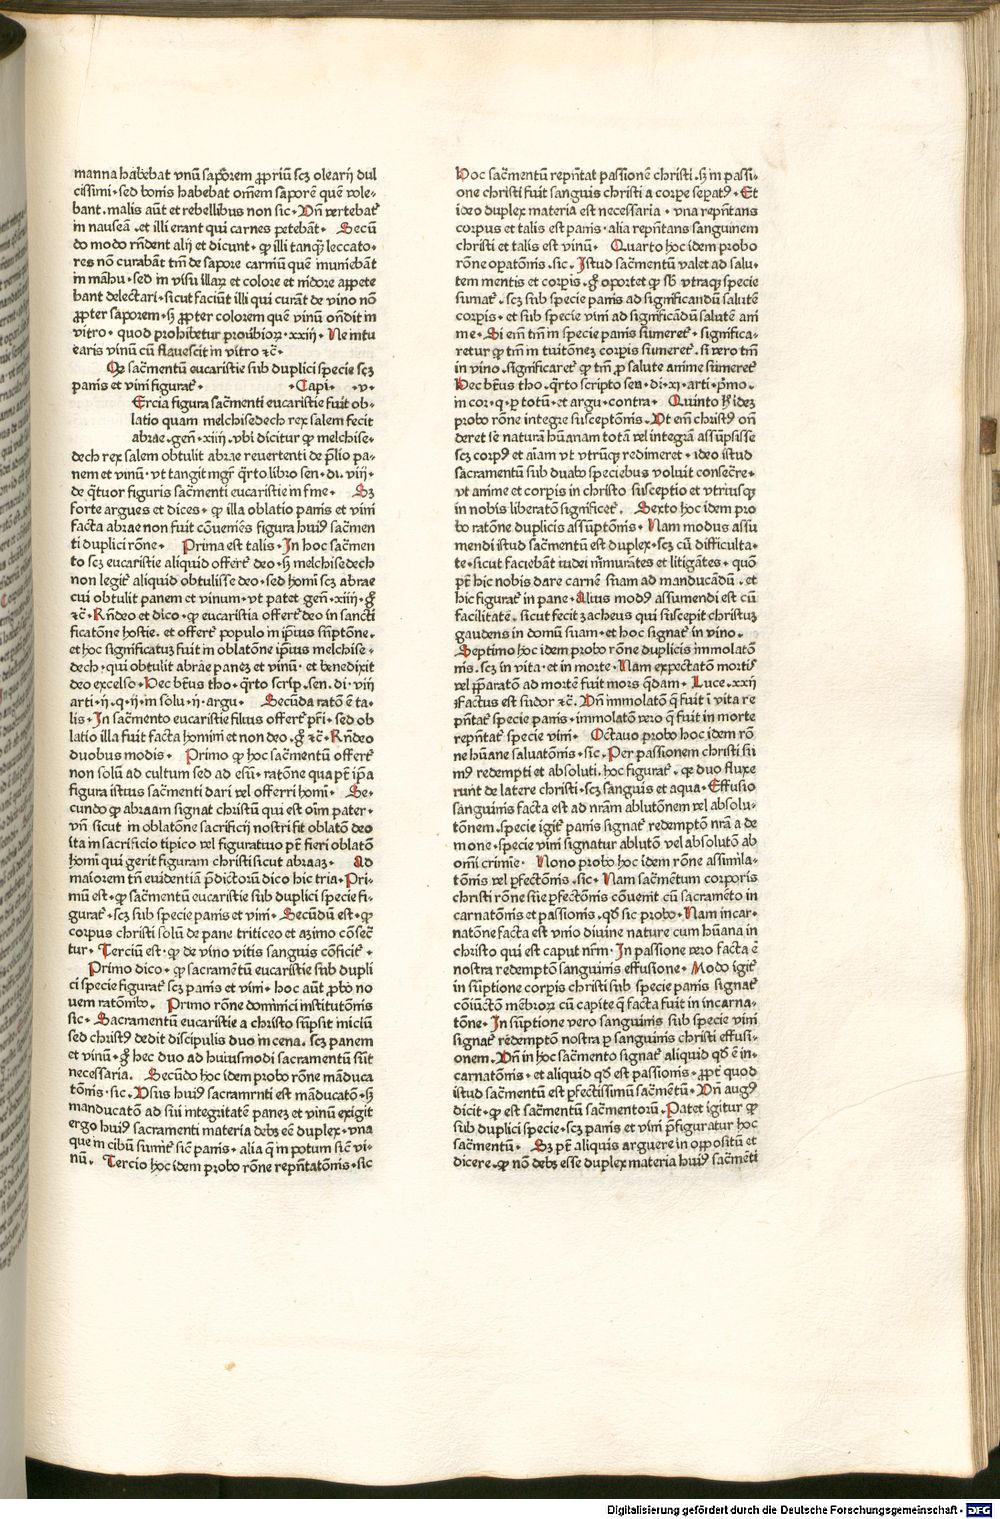 manna habebat vnū saporem ꝓpriū scꝫ olearij dul
cissimi. sed bonis habebat om̄em saporē quē vole-
bant. malis aūt et rebellibus non sic. Vn̄ vertebat᷑
in nauseā. et illi erant qui carnes petebāt. Secū
do modo rn̄dent alij et dicunt. ꝙ illi tanqꝫ leccato-
res nō curabāt tm̄ de sapore carniū quē inuniebāt
in māhu. sed in visu illaꝝ et colore et nidore appete
bant delectari. sicut faciūt illi qui curāt de vino nō
ꝓpter saporem. sꝫ ꝓpter colorem quē vinū on̄dit in
vitro. quod prohibetur prouibioꝝ. xxiij. Ne intu
earis vinū cū flauescit in vitro ⁊c̄.
Qꝫ sac̄mentū eucaristie sub duplici specie scꝫ
panis et vini figurat᷑. Capi. .v.
Ercia figura sac̄menti eucaristie fuit ob-
latio quam melchisedech rex salem fecit
abrae. gen̄. xiiij. vbi dicitur ꝙ melchise-
dech rex salem obtulit abrae reuertenti de p̄lio pa-
nem et vinū. vt tangit mgr̄ q̄rto libro sen. di. viij.
de q̄tuor figuris sac̄menti eucaristie in fine. Sꝫ
forte argues et dices. ꝙ illa oblatio panis et vini
facta abrae non fuit cōueniēs figura huiꝰ sacmen
ti duplici rōne. Prima est talis. In hoc sac̄men
to scꝫ eucaristie aliquid offert᷑ deo. sꝫ melchisedech
non legit᷑ aliquid obtulisse deo. sed homī scꝫ abrae
cui obtulit panem et vinum. vt patet gen̄. xiiij. gͦ
⁊c̄. Rn̄deo et dico. ꝙ eucaristia offert᷑ deo in sancti
ficatōne hostie. et offert᷑ populo in ip̄ius sūptōne.
et hoc significatuꝫ fuit in oblatōne ip̄ius melchise-
dech. qui obtulit abrae paneꝫ et vinū. et benedixit
deo excelso. Hec bt̄us tho. q̄rto scrip. sen. di. viij
arti. ij. q. ij. in solu. ij. argu. Secūda ratō ē ta-
lis. In sac̄mento eucaristie filius offert᷑ pr̄i. sed ob
latio illa fuit facta homini et non deo. gͦ ⁊c̄. Rn̄deo
duobus modis. Primo ꝙ hoc sac̄mentū offert᷑
non solū ad cultum sed ad esū. ratōne qua pt̄ ip̄a
figura istius sac̄menti dari vel offerri homī. Se-
cundo ꝙ abraam signat christū qui est oīm pater.
vn̄ sicut in oblatōne sacrificij nostri fit oblatō deo
ita in sacrificio tipico vel figuratiuo pt̄ fieri oblatō
homī qui gerit figuram christi sicut abraaꝫ. Ad
maiorem tn̄ euidentiā p̄dictorū dico hic tria. Pri-
mū est. ꝙ sac̄mentū eucaristie sub duplici specie fi-
gurat᷑. scꝫ sub specie panis et vini. Secūdū est. ꝙ
corpus christi solū de pane triticeo et azimo cōfec̄
tur. Terciū est. ꝙ de vino vitis sanguis cōficit᷑.
Primo dico. ꝙ sacramētū eucaristie sub dupli
ci specie figurat᷑ scꝫ panis et vini. hoc aūt ꝓbo no
uem ratōnibꝰ. Primo rōne dominici institutōnis
sic. Sacramentū eucaristie a christo sūpsit iniciū
sed christꝰ dedit discipulis duo in cena. scꝫ panem
et vinū. gͦ hec duo ad huiusmodi sacramentū sūt
necessaria. Secūdo hoc idem probo rōne māduca
tōnis. sic. Vsus huiꝰ sacramrnti est māducatō. sꝫ
manducatō ad sui integritatē paneꝫ et vinū exigit
ergo huiꝰ sacramenti materia debꝫ eē duplex. vna
que in cibū sumit᷑ sic̄ panis. alia q̄ in potum sic̄ vi-
nū. Tercio hoc idem probo rōne repn̄tatōnis. sic
Hoc sac̄mentū repn̄tat passionē christi. sꝫ in passi-
one christi fuit sanguis christi a corpe sepatꝰ. Et
ideo duplex materia est necessaria. vna repn̄tans
corpus et talis est panis. alia repn̄tans sanguinem
christi et talis est vinū. Quarto hoc idem probo
rōne opatōnis. sic. Istud sac̄mentū valet ad salu-
tem mentis et corpis. gͦ oportet ꝙ sb̄ vtraqꝫ specie
sumat᷑. scꝫ sub specie panis ad significandū salutē
corpis. et sub specie vini ad significādū salutē ani
me. Si em̄ tm̄ in specie panis sumeret᷑. significa-
retur ꝙ tm̄ in tuitōneꝫ corpis sumeret᷑. si vero tm̄
in vino. significaret᷑ ꝙ tm̄ ꝓ salute anime sumeret᷑
Hec bt̄us tho. q̄rto scripto sen. di. xj. arti. p̄mo.
in cor. q. p totū. et argu. contra. Quinto hͦ ideꝫ
probo rōne integre susceptōnis. Vt em̄ christꝰ on̄
deret se naturā hūanam totā vel integrā assūpsisse
scꝫ corpꝰ et aīam vt vtrūqꝫ redimeret. ideo istud
sacramentū sub duabꝰ speciebus voluit consec̄re.
vt anime et corpis in christo susceptio et vtriusqꝫ
in nobis liberatō significet᷑. Sexto hoc idem pro
bo ratōne duplicis assūptōnis. Nam modus assu
mendi istud sac̄mentū est duplex. scꝫ cū difficulta-
te. sicut faciebāt iudei m̄murātes et litigātes. quō
pt̄ hic nobis dare carnē suam ad manducādū. et
hic figurat᷑ in pane. Alius modꝰ assumendi est cū
facilitatē. sicut fecit zacheus qui suscepit christuꝫ
gaudens in domū suam. et hoc signat᷑ in vino.
Septimo hoc idem probo rōne duplicis immolatō
nis. scꝫ in vita. et in morte. Nam expectatō mortis
vel p̄paratō ad mortē fuit mors q̄dam. Luce. xxij
Factus est sudor ⁊c̄. Vn̄ immolatō q̄ fuit ī vita re
pn̄tat᷑ specie panis. immolatō vero q̄ fuit in morte
repn̄tat᷑ specie vini. Octauo probo hoc idem rō
ne hūane saluatōnis. sic. Per passionem christi su
mꝰ redempti et absoluti. hoc figurat᷑. qꝫ duo fluxe
runt de latere christi. scꝫ sanguis et aqua. Effusio
sanguinis facta est ad nrām ablutōnem vel absolu-
tōnem. specie igit᷑ panis signat᷑ redemptō nrā a de
mone. specie vini signatur ablutō vel absolutō ab
omī crimine. Nono probo hoc idem rōne assimila-
tōnis vel pfectōnis. sic. Nam sac̄mētum corporis
christi rōne sue pfectōnis cōuenit cū sacramēto in
carnatōnis et passionis. qd̄ sic probo. Nam incar-
natōne facta est vnio diuine nature cum hūana in
christo qui est caput nrm̄. In passione vero facta ē
nostra redemptō sanguinis effusione. Modo igit᷑
in sūptione corpis christi sub specie panis signat᷑
cōiūctō mēbroꝝ cū capite q̄ facta fuit in incarna-
tōne. In sūptione vero sanguinis sub specie vini
signat᷑ redemptō nostra p sanguinis christi effusi-
onem. Vn̄ in hoc sac̄mento signat᷑ aliquid qd̄ ē in-
carnatōnis. et aliquid qd̄ est passionis. ꝓpt᷑ quod
istud sac̄mentū est pfectissimū sac̄mētū. Vn̄ augꝰ
dicit. ꝙ est sac̄mentū sac̄mentorū. Patet igitur ꝙ
sub duplici specie. scꝫ panis et vini p̄figuratur hoc
sac̄mentū. Sꝫ pt̄ aliquis arguere in oppositū et
dicere. ꝙ nō debꝫ esse duplex materia huiꝰ sac̄mēti
Digitalisierung gefördert durch die Deutsche Forschungsgemeinschaft - DFG